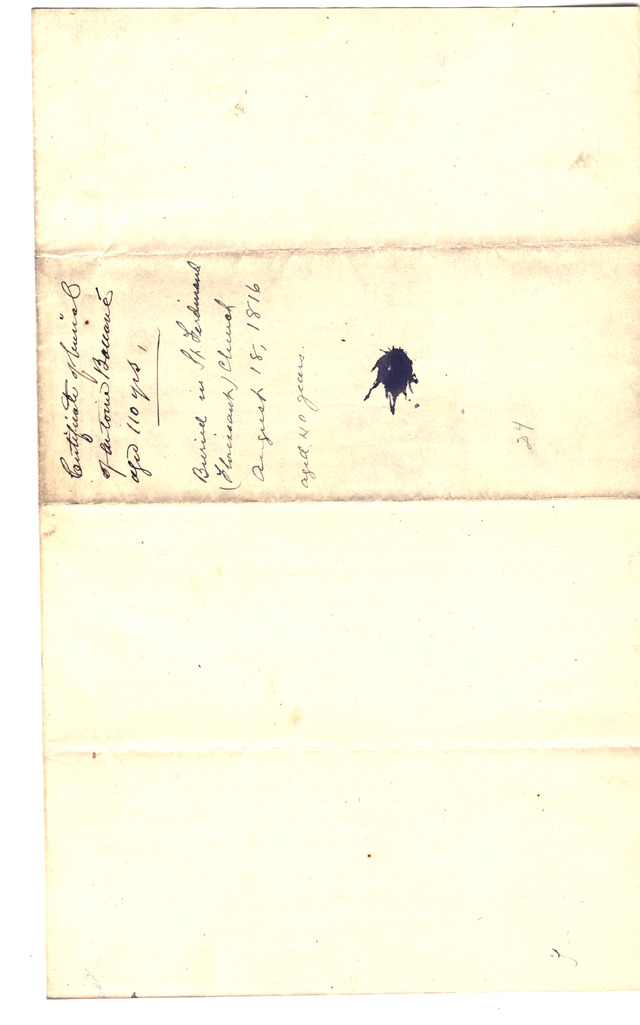 Certificate of burial
of Antoine
aged 110 yrs,
Buried in St. Ferdinand
(Florissant) Church
August 18, 1816
aged 40 years.
24